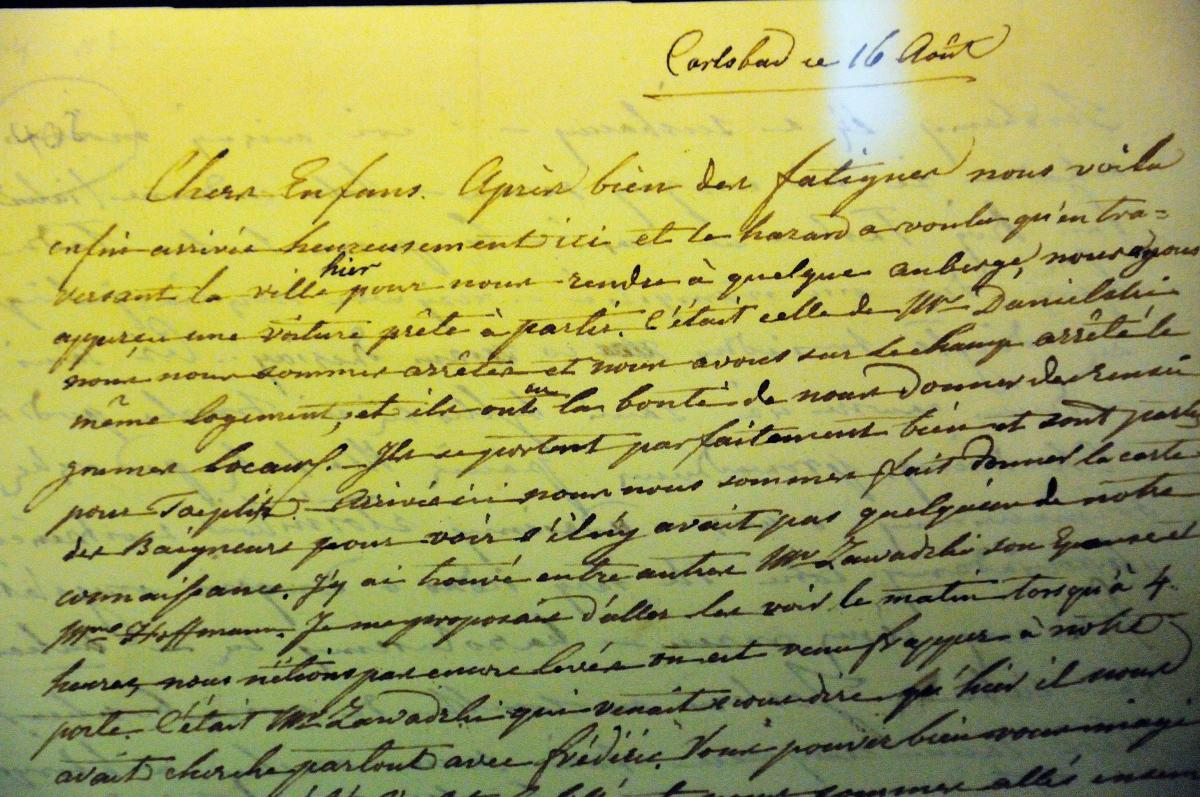 Carlsbad ce 16 Août
Chers Enfans. Après bien des fatigues nous voila
enfin arrivés heureusement ici et le hazard a voulu qu'en tra=
versant la ville hier pour nous rendre à quelque auberge, nous ayons
apperçu une voiture prête à partir. C'était celle de Mr Danielski
nous nous sommes arrêtés et nous avons sur le champ arrêté le
même logement, et ils ont eu la bonté de nous donner des rensei
gnemes locaux. Ils se portent parfaitement bien et sont partis
pour Toeplitz. Arrivés ici nous nous sommes fait donner la carte
des Baigneurs pour voir s'il n'y avait pas quelqu'un de notre
connaissance. J'y ai trouvé entre autres Mr Zawadzki son Epouse et
Mme Hoffmann. Je me proposais d'aller les voir le matin lorsqu'à 4
heures, nous n'étions pas encore levés on est venu frapper à notre
porte. C'était Mr Zawadzki qui venait nous dire qu'hier il nous
avait cherché partout avec frédéric. Vous pouvez bien vous imagi
sommes allés ensem